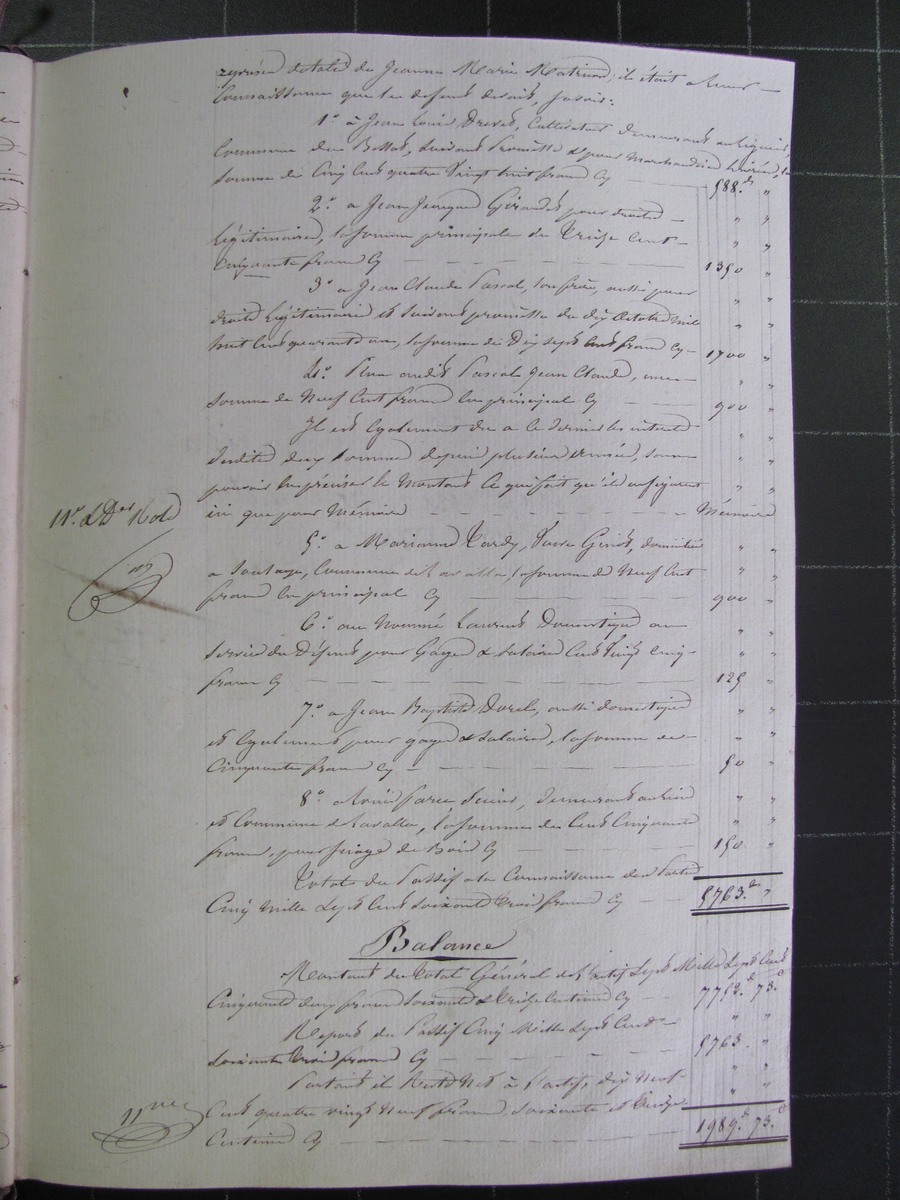 de Jeanne Marie il était à leur
Connaissance que le défunt devait, savoir:
1° à Jean Louis Cultivateur demeurant
Commune du suivant Promesse & pour Marchandises
somme de Cinq Cent quatre Vingt huit francs Cy 588.fs "
2° à Jean pour droits
légitimaires, la somme principale de Treize Cent
Cinquante francs Cy 1350 "
3° à Jean Claude Pascal, son frère, aussi pour
droits légitimaires et suivant promesse du dix Octobre mil
huit Cent quarante un, la somme de Dix Sept Cent francs Cy 1700 "
4° Plus audit Pascal Jean Claude, une
somme de Neuf Cent francs en principal Cy 900 "
Il est Également dû à ce dernier les intérêts
desdites deux sommes depuis plusieurs années, sans
pouvoir en préciser le Montant Ce qui fait qu'ils ne figurent
ici que pour Mémoire Mémoire
11e. & Der Rôle
5° à Marianne Tardy, Veuve domiciliée
à Commune de la somme de Neuf Cent
francs en principal Cy 900 "
6° au Nommé Laurent Domestique au
service du Défunt pour Gages & salaires Cent Vingt Cinq
francs Cy 125 "
7° à Jean Baptiste aussi domestique
et Également pour gages & salaires, la somme de
Cinquante francs Cy 50 "
8° à Scieur, demeurant au
et Commune de la somme de Cent Cinquante
francs, pour Sciage de Bois Cy 150 "
Total du Passif à la Connaissance des Parties
Cinq Mille Sept Cent Soixante Trois francs Cy 5763.fs "
Balance
Montant du Total Général de l'actif Sept Mille Sept Cent
Cinquante deux francs soixante & Treize Centimes Cy 7752.fs 73.c
Report du Passif Cinq Mille Sept Cent
soixante Trois francs Cy 5763. "
Partant il Reste Net à l'actif, dix Neuf
Cent quatre vingt Neuf francs soixante et Treize
Centimes Cy 1989.fs 73.c